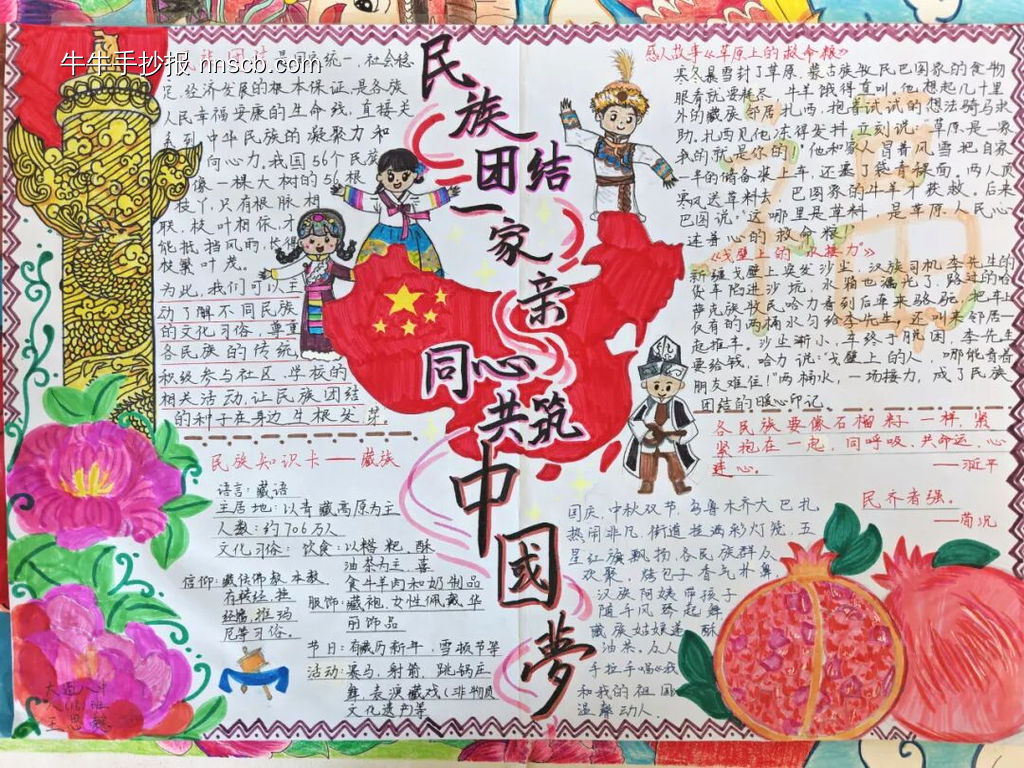 牛牛手抄报 nnscb.com
民族团结一家亲
同心共筑
中国夢
民族团结是国家统一,社会稳
定,经济发展的根本保证,是各族
人民幸福安康的生命线,直接关
系到中华民族的凝聚力和
向心力,我国56个民族
像一棵大树的56根
枝丫,只有根脉相
联,枝叶相依,才
能抵挡风雨,长得
枝繁叶茂。
为此,我们可以主
动了解不同民族
的文化习俗,尊重
各民族的传统,
积极参与社区、学校的
相关活动,让民族团结
的种子在身边生根发芽。
民族知识卡——藏族
语言:藏语
主居地:以青藏高原为主
人数:约706万人
文化习俗:饮食:以糌粑、酥
油茶为主,喜
食牛羊肉和奶制品
信仰:藏传佛教、本教,
有转经、挂
经幡、堆玛
尼等习俗。
服饰:藏袍,女性佩戴华
丽饰品
节日:有藏历新年、雪顿节等
活动:赛马、射箭、跳锅庄
舞、表演藏戏(非物质
文化遗产等
感人故事《草原上的救命粮》
寒冬暴雪封了草原,蒙古族牧民巴图家的食物
眼看就要耗尽,牛羊饿得直叫,他想起几十里
外的藏族邻居扎西,抱着试试的想法骑马求
助,扎西见他冻得发抖,立刻说:“草原是一家
我的就是你的”他和家人冒着风雪把自家
一半的储备装上车,还塞了袋青稞面。两人顶
寒风送草料去,巴图家的牛羊才获救,后来
巴图说:“这哪里是草料,是草原人民心
连着心的救命粮!”
《戈壁上的“水接力”》
新疆戈壁上突发沙尘,汉族司机李先生的
货车陷进沙坑,水箱也漏光了,路过的哈
萨克族牧民哈力看到后牵来骆驼,把车上
仅有的两桶水匀给李先生,还叫来邻居一
起推车。沙尘渐小,车终于脱困,李先生
要给钱,哈力说:“戈壁上的人,哪能看着
朋友难住!”两桶水,一场接力,成了民族
团结的暖心印记。
各民族要像石榴籽一样,紧
紧抱在一起,同呼吸、共命运、心
连心。
民齐者强。
——荀况
国庆,中秋双节,乌鲁木齐大巴扎
热闹非凡,街道挂满彩灯笼,五
星红旗飘扬,各民族群众
欢聚,烤包子香气扑鼻,
汉族阿姨带孩子
随手风琴起舞,
藏族姑娘递酥
油茶。万人
手拉手唱《我
和我的祖国
温馨动人。